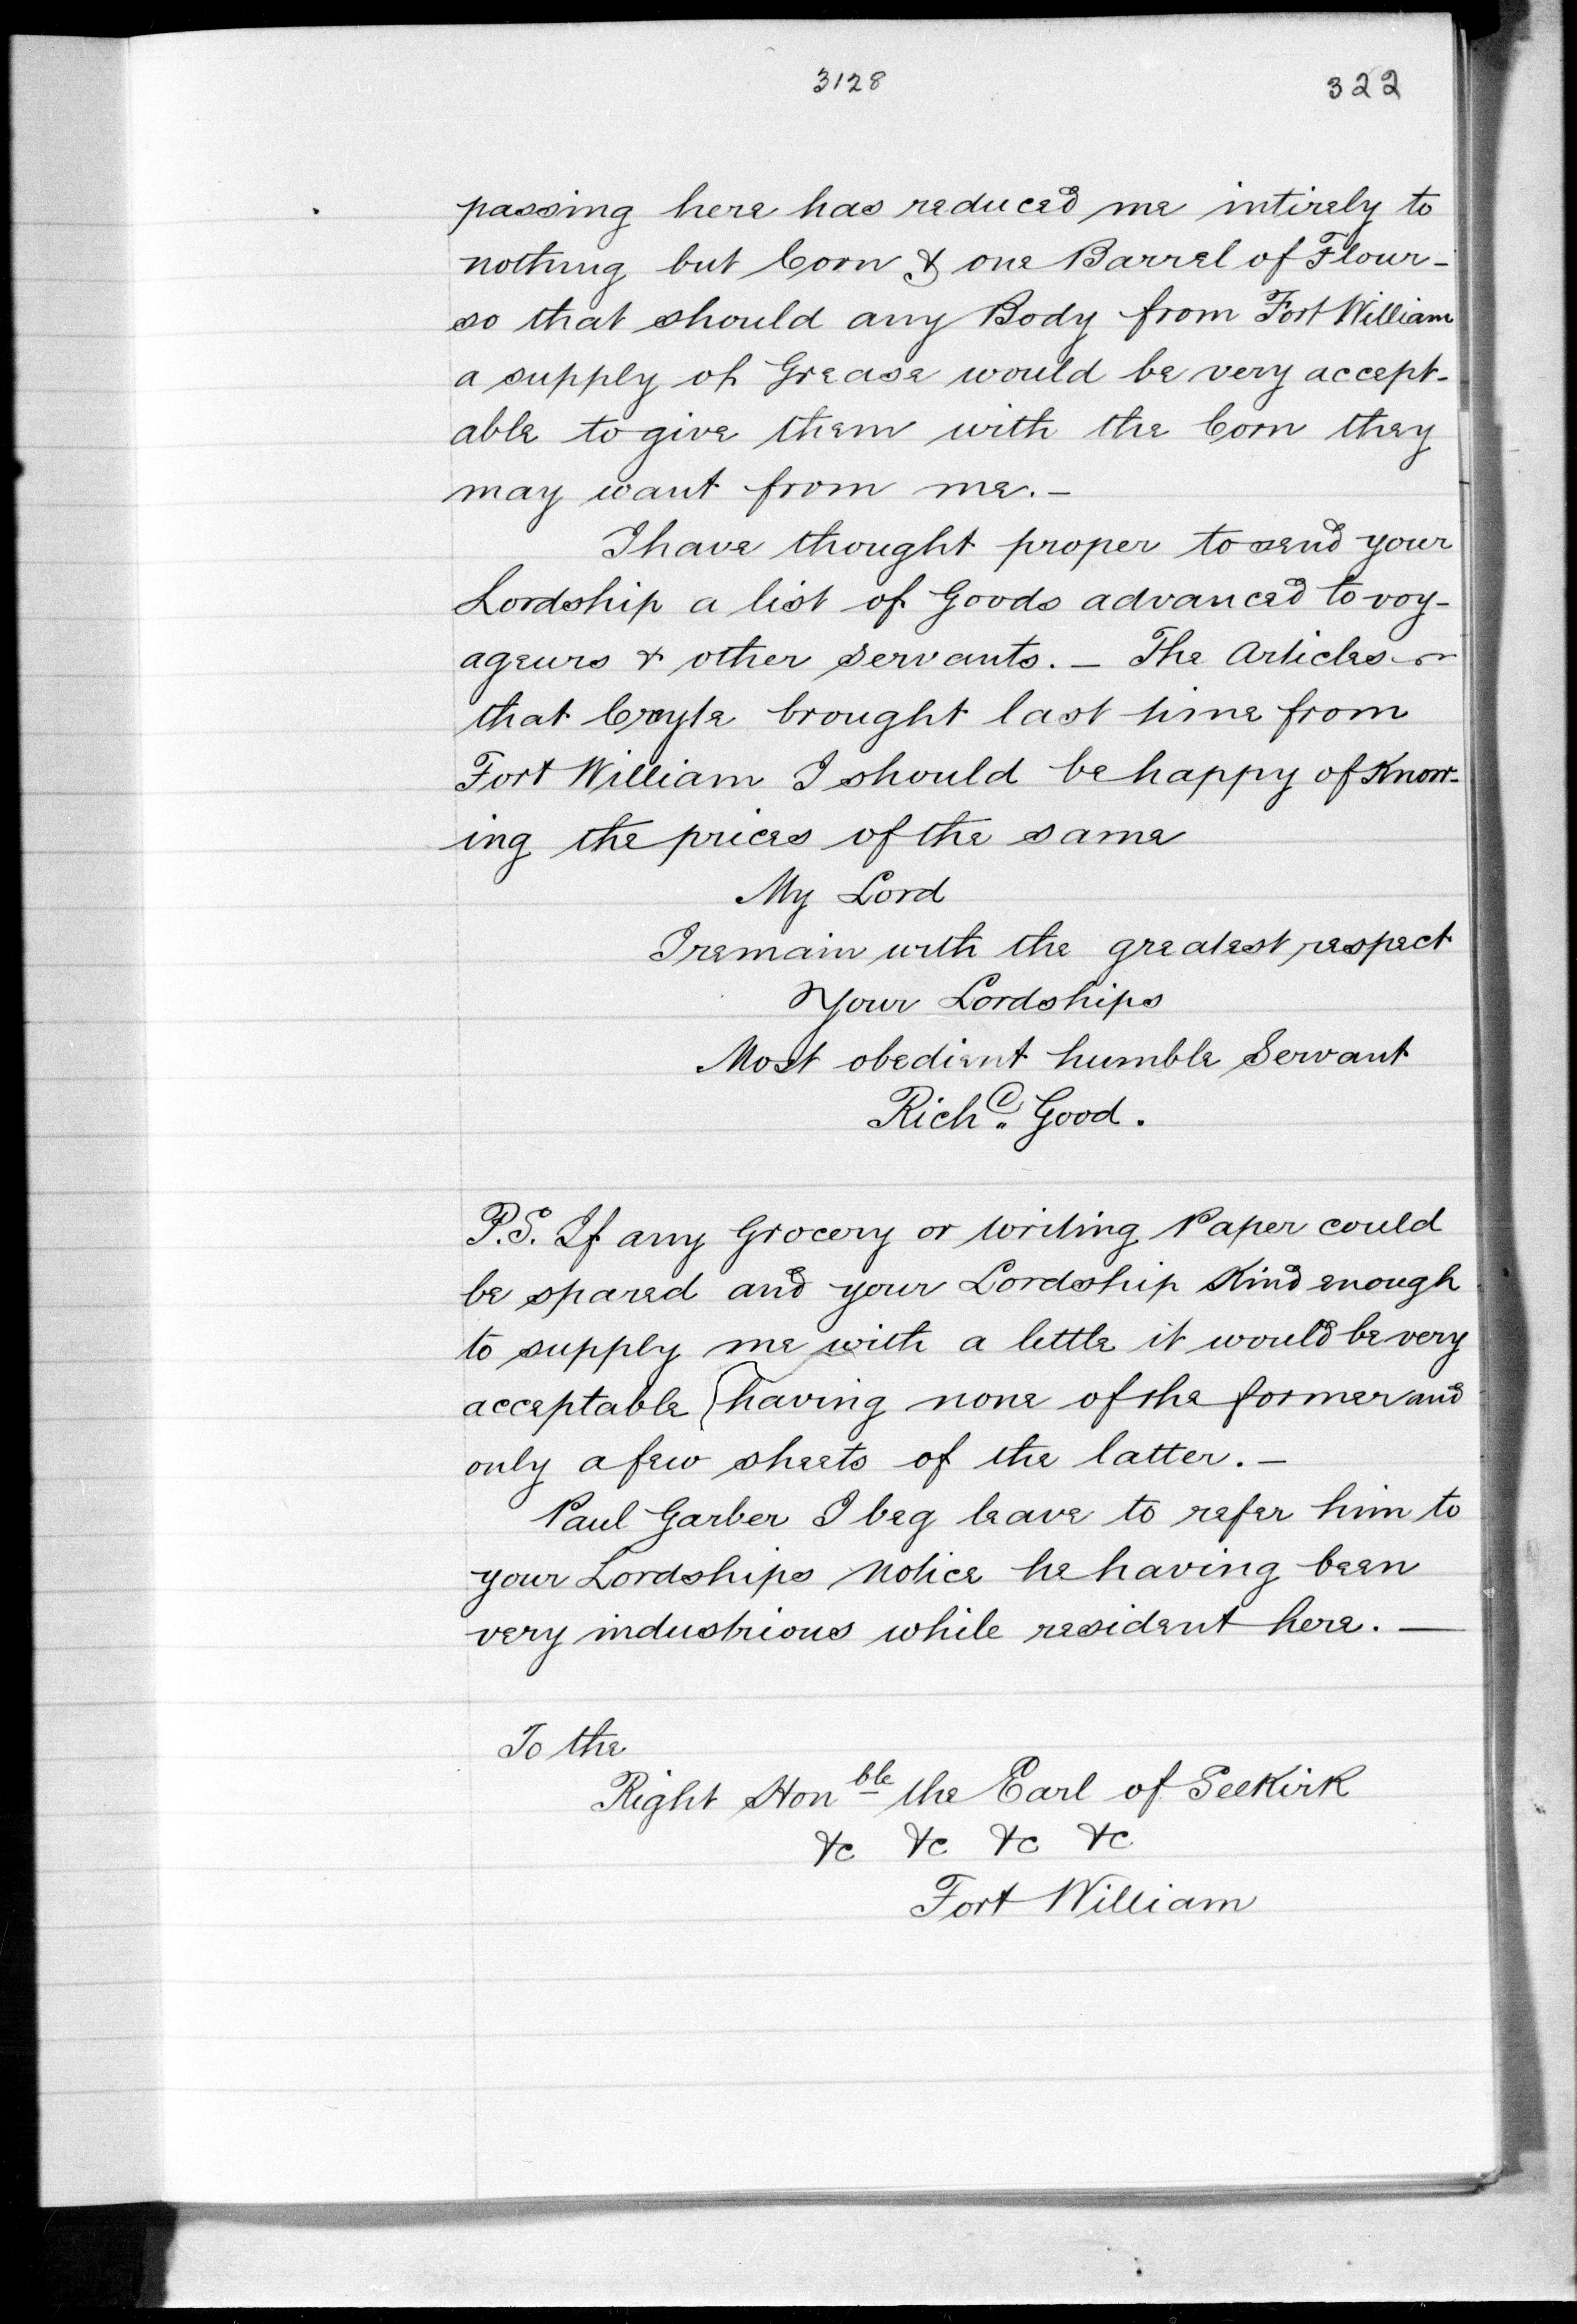 3128 322
passing here has reduced me intirely to
nothing but Corn & one Barrel of Flour -
so that should any Body from Fort William
a supply of Grease would be very accept-
able to give them with the Corn they
may want from me. -
I have thought proper to send your
Lordship a list of Goods advanced to voy-
ageurs & other Servants. - The Articles
that brought last time from
Fort William I should be happy of Know-
ing the prices of the same
My Lord
I remain with the greatest respect
Your Lordships
Most obedient humble Servant
Richd. Good.
P.S. If any Grocery or Writing Paper could
be spared and your Lordship Kind enough
to supply me with a little it would be very
acceptable (having none of the former and
only a few sheets of the latter. -
Paul Garber I beg leave to refer him to
your Lordships Notice he having been
very industrious while resident here. -
To the
Right Honble the Earl of Selkirk
&c &c &c &c
Fort William